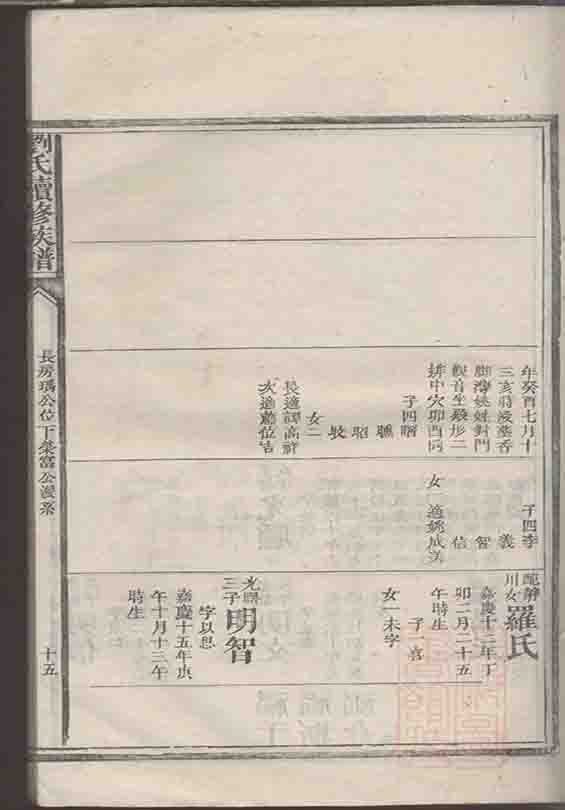 劉氏續修族譜
長房瑀公位下榮富公漫系
十五
年癸酉七月十
三亥時沒塟香
脚灣姚妹對門
觀音坐殿形二
排中穴卯酉向
子四
昭
女二
長適譚高
次適
子四孝
義
智
信
女一適姚成美
配靜
川女
羅氏
嘉慶十二年丁
卯二月二十五
午時生
子一喜
女一未字
光照
三子
明智
字以思
嘉慶十五年庚
午十月十三午
時生